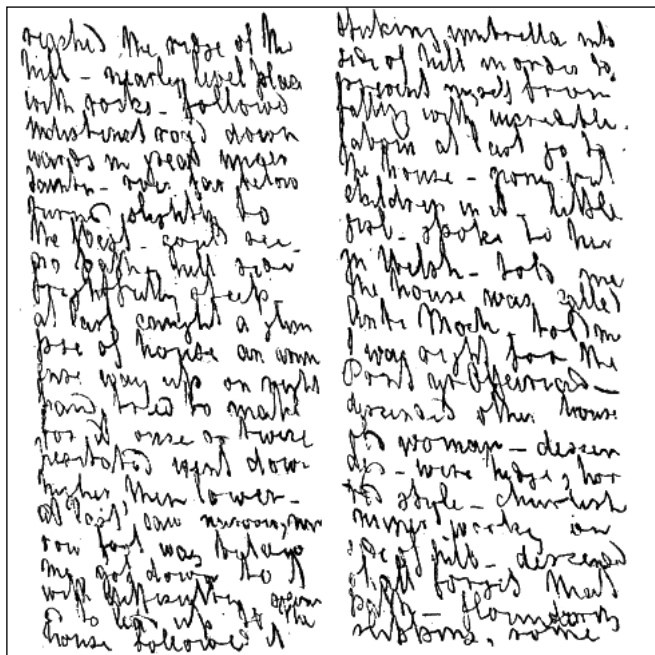 reached the ridge of the
hill – nearly level place
with rocks – followed
indistinct road down
wards in great
river far below
turned slightly to
the West – could see
no path, hill side
frightfully steep –
at last caught a glim
pse of house an imm
ense way up on right
hand tried to make
for it once or twice
hesitated went down
higher then lower –
at last saw narrow, nar
row foot way below
me got down to it
with difficulty
to lead up to the
house followed it
sticking umbrella into
side of hill in order to
prevent myself from
falling with incredible
labour at last got to
the house – gone but
children in it – little
girl – spoke to her
in Welsh – told me
the house was called
Moch told me
I was right for the
Pont y
descended other house
old woman – descen
ded – wire hedge, hor
rid style – churlish
miner working on
side of hill – descended
at all forges
path – floundered
some